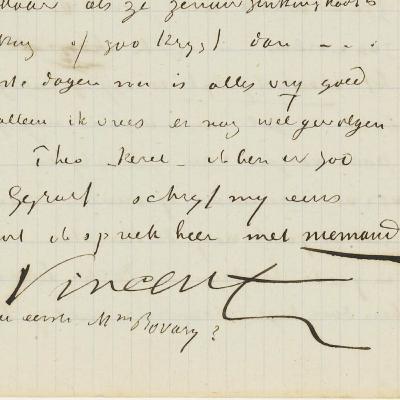 maar als ze zenuwzinkingkoorts
kry of zoo krygt dan - - .
ste dagen nu is alles vry goed
alleen ik vrees er nog wel gevolgen
Theo kerel - ik ben er zoo
schryf my eens
ik spreek hier met niemand
Vincent
eerste Mme Bovary?